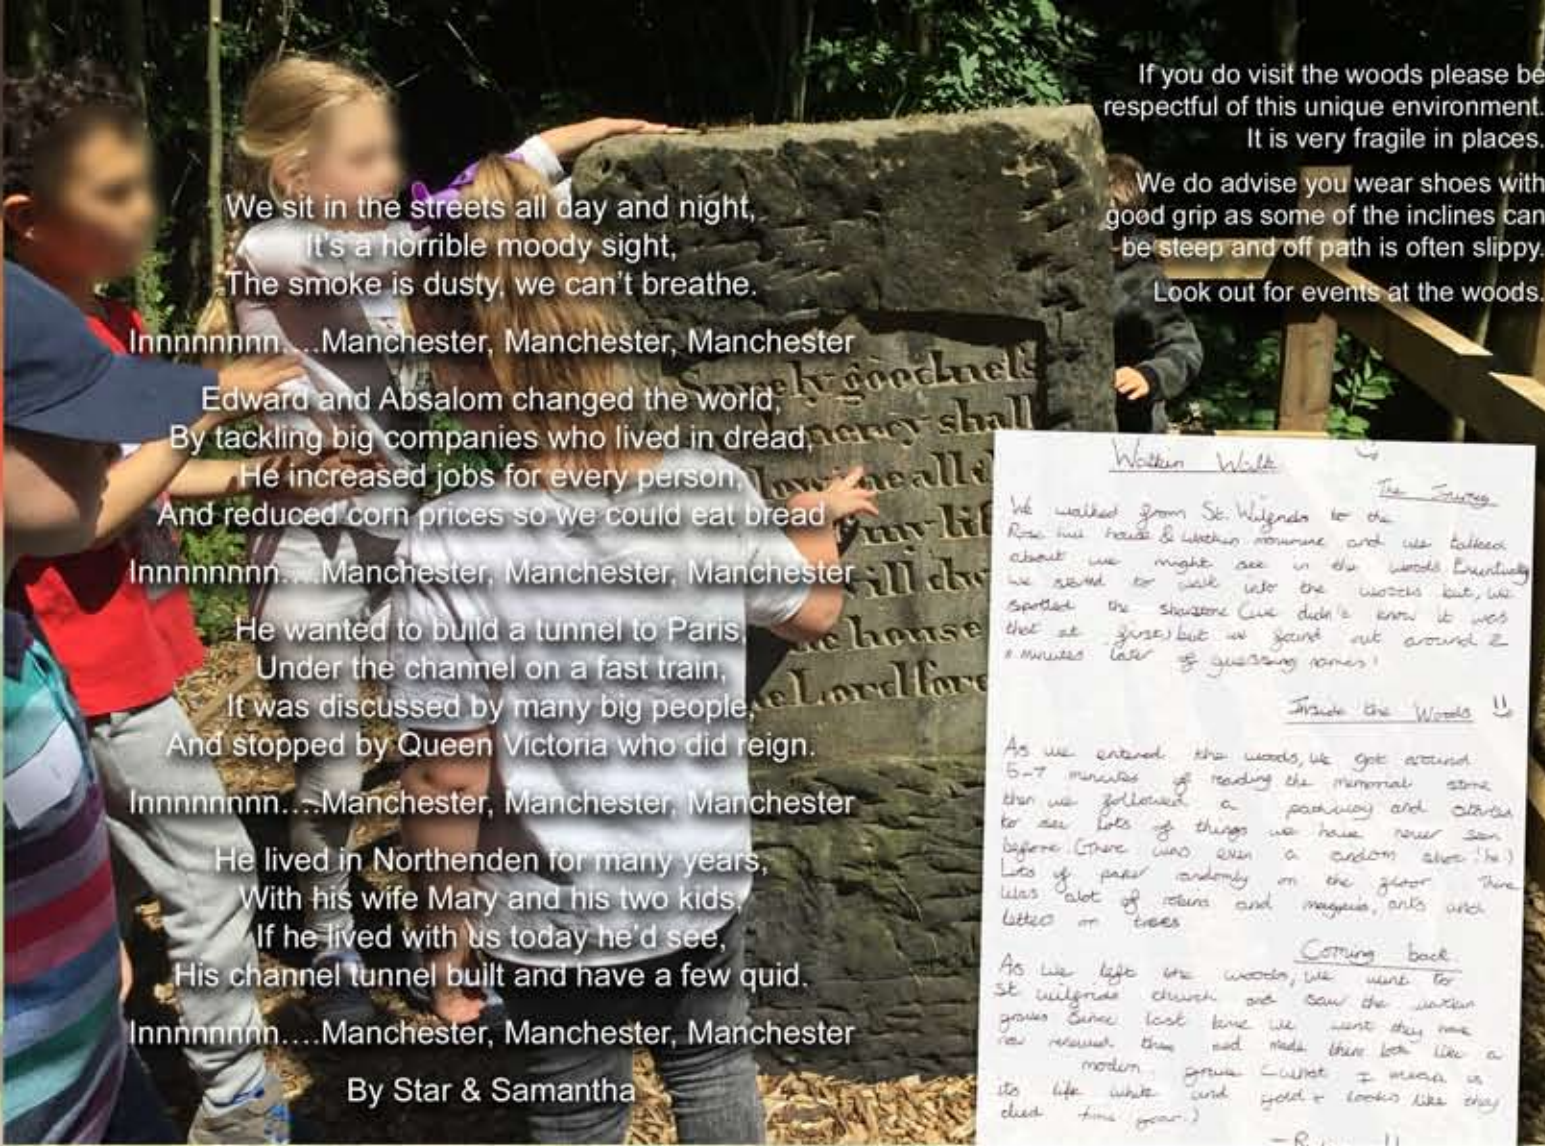 We sit in the streets all day and night,
It's a horrible moody sight,
The smoke is dusty, we can't breathe.
Innnnnnnn....Manchester, Manchester, Manchester
Edward and Absalom changed the world,
By tackling big companies who lived in dread,
He increased jobs for every person,
And reduced corn prices so we could eat bread
Innnnnnnn....Manchester, Manchester, Manchester
He wanted to build a tunnel to Paris,
Under the channel on a fast train,
It was discussed by many big people,
And stopped by Queen Victoria who did reign.
Innnnnnnn....Manchester, Manchester, Manchester
He lived in Northenden for many years,
With his wife Mary and his two kids,
If he lived with us today he'd see,
His channel tunnel built and have a few quid.
Innnnnnnn....Manchester, Manchester, Manchester
By Star & Samantha
If you do visit the woods please be
respectful of this unique environment.
It is very fragile in places.
We do advise you wear shoes with
good grip as some of the inclines can
be steep and off path is often slippy.
Look out for events at the woods.
Surely goodness
mercy shall
me all
my lif
ill dw
house
e Lord for
Watkin Walk
The
We walked from St. Wilfrids to the
Rose house & Watkin and we talked
about we might see in the woods. Eventually
we to walk into the woods but, we
spotted the (we didn't know it was
that at first) but we found out around 2
minutes later of guessing names!
Inside the Woods
As we entered the woods, we got around
5-7 minutes of reading the memorial stone
then we followed a and
to see lots of things we have never seen
before (there was even a random shoe! ha!)
Lots of paper randomly on the floor. There
was alot of robins and magpies, ants and
letters on trees
Coming back
As we left the woods, we went to
St wilfrids church and saw the watkin
graves Since last time we went they have
now them and made them look like a
modern grave (what I mean is
its like white and gold + looks like they
died this year.)